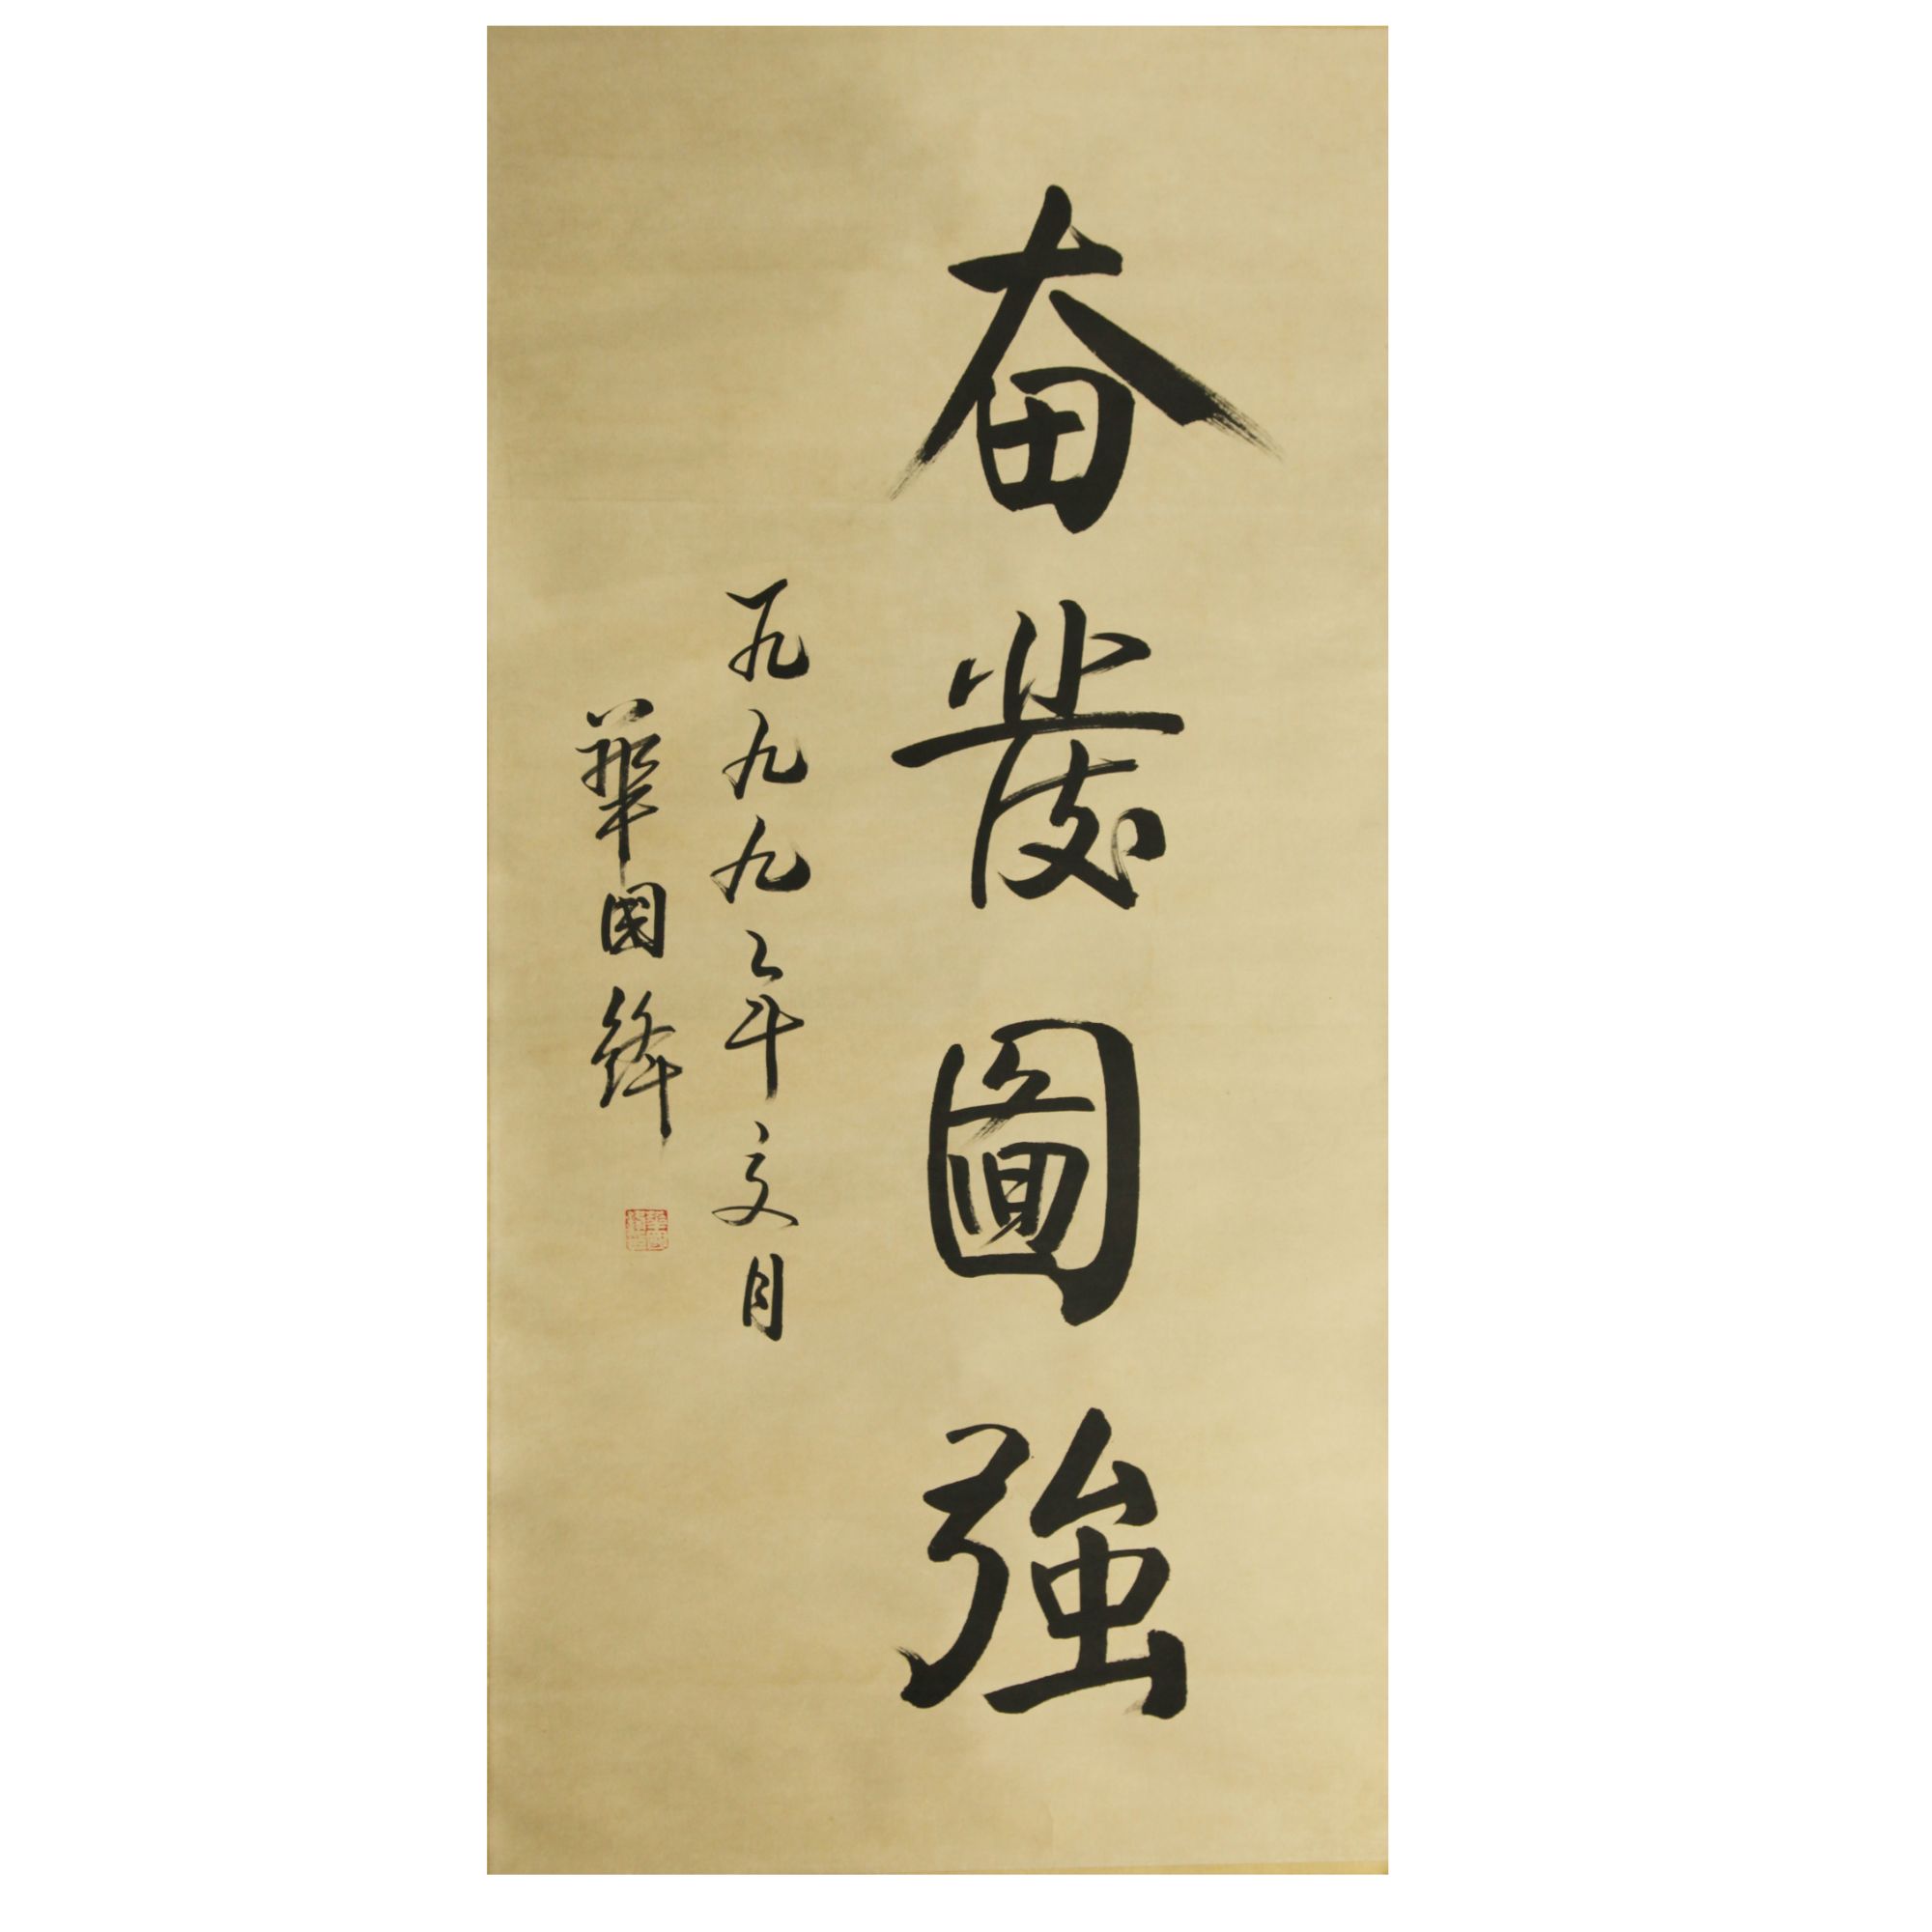 奋發圖強
一九九九年六月
華國鋒